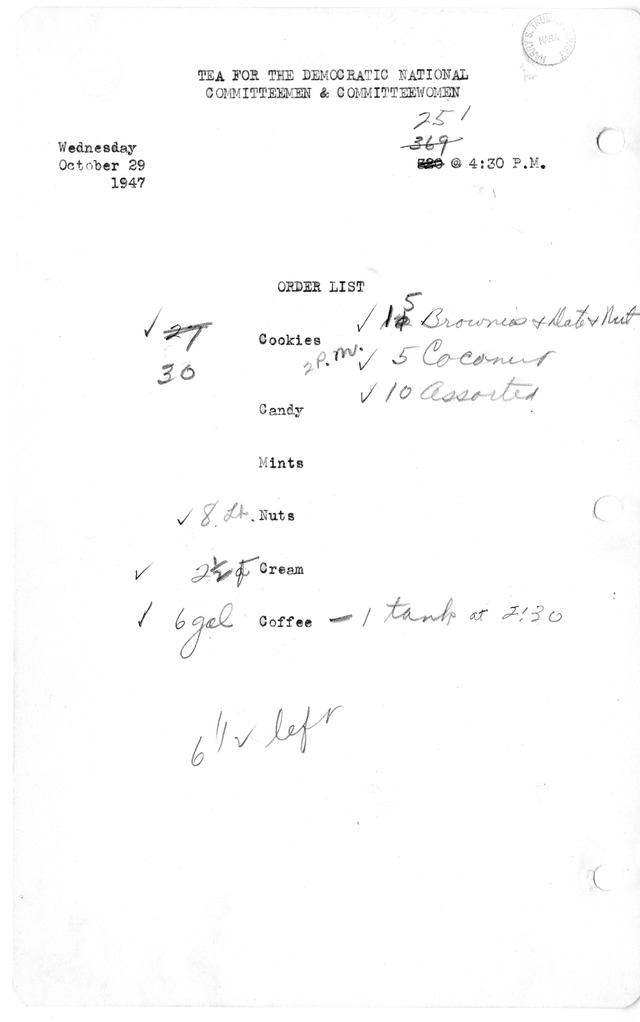 HARRY S. TRUMAN LIBRARY
NARA
TEA FOR THE DEMOCRATIC NATIONAL
COMMITTEEMEN & COMMITTEEWOMEN
251
369
Wednesday
October 29
1947
@ 4:30 P.M.
ORDER LIST
✓ 27 Cookies ✓ 15 Brownies & Date & Nut
30 2 P.M. ✓ 5 Coconut
Candy ✓ 10 Assorted
Mints
✓ 8 Lb. Nuts
✓ 2½ Cream
✓ 6 gal Coffee - 1 tank at 2:30
6 1/2 left